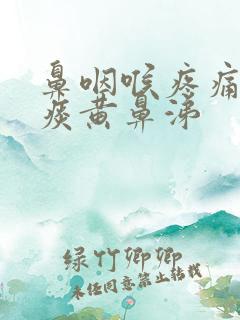 鼻咽喉疼痛
痰黄鼻涕
绿竹卿卿
未经同意禁止转载